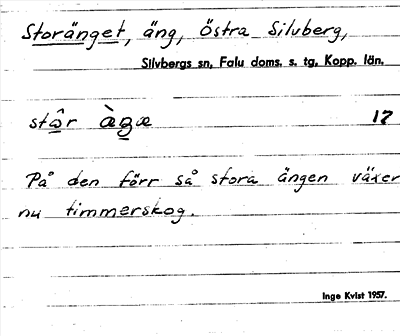 Storänget, äng, Östra Silvberg,
Silvbergs sn, Falu doms. s. tg, Kopp. län.
stâr àgæ 17
På den förr så stora ängen växer
nu timmerskog.
Inge Kvist 1957.